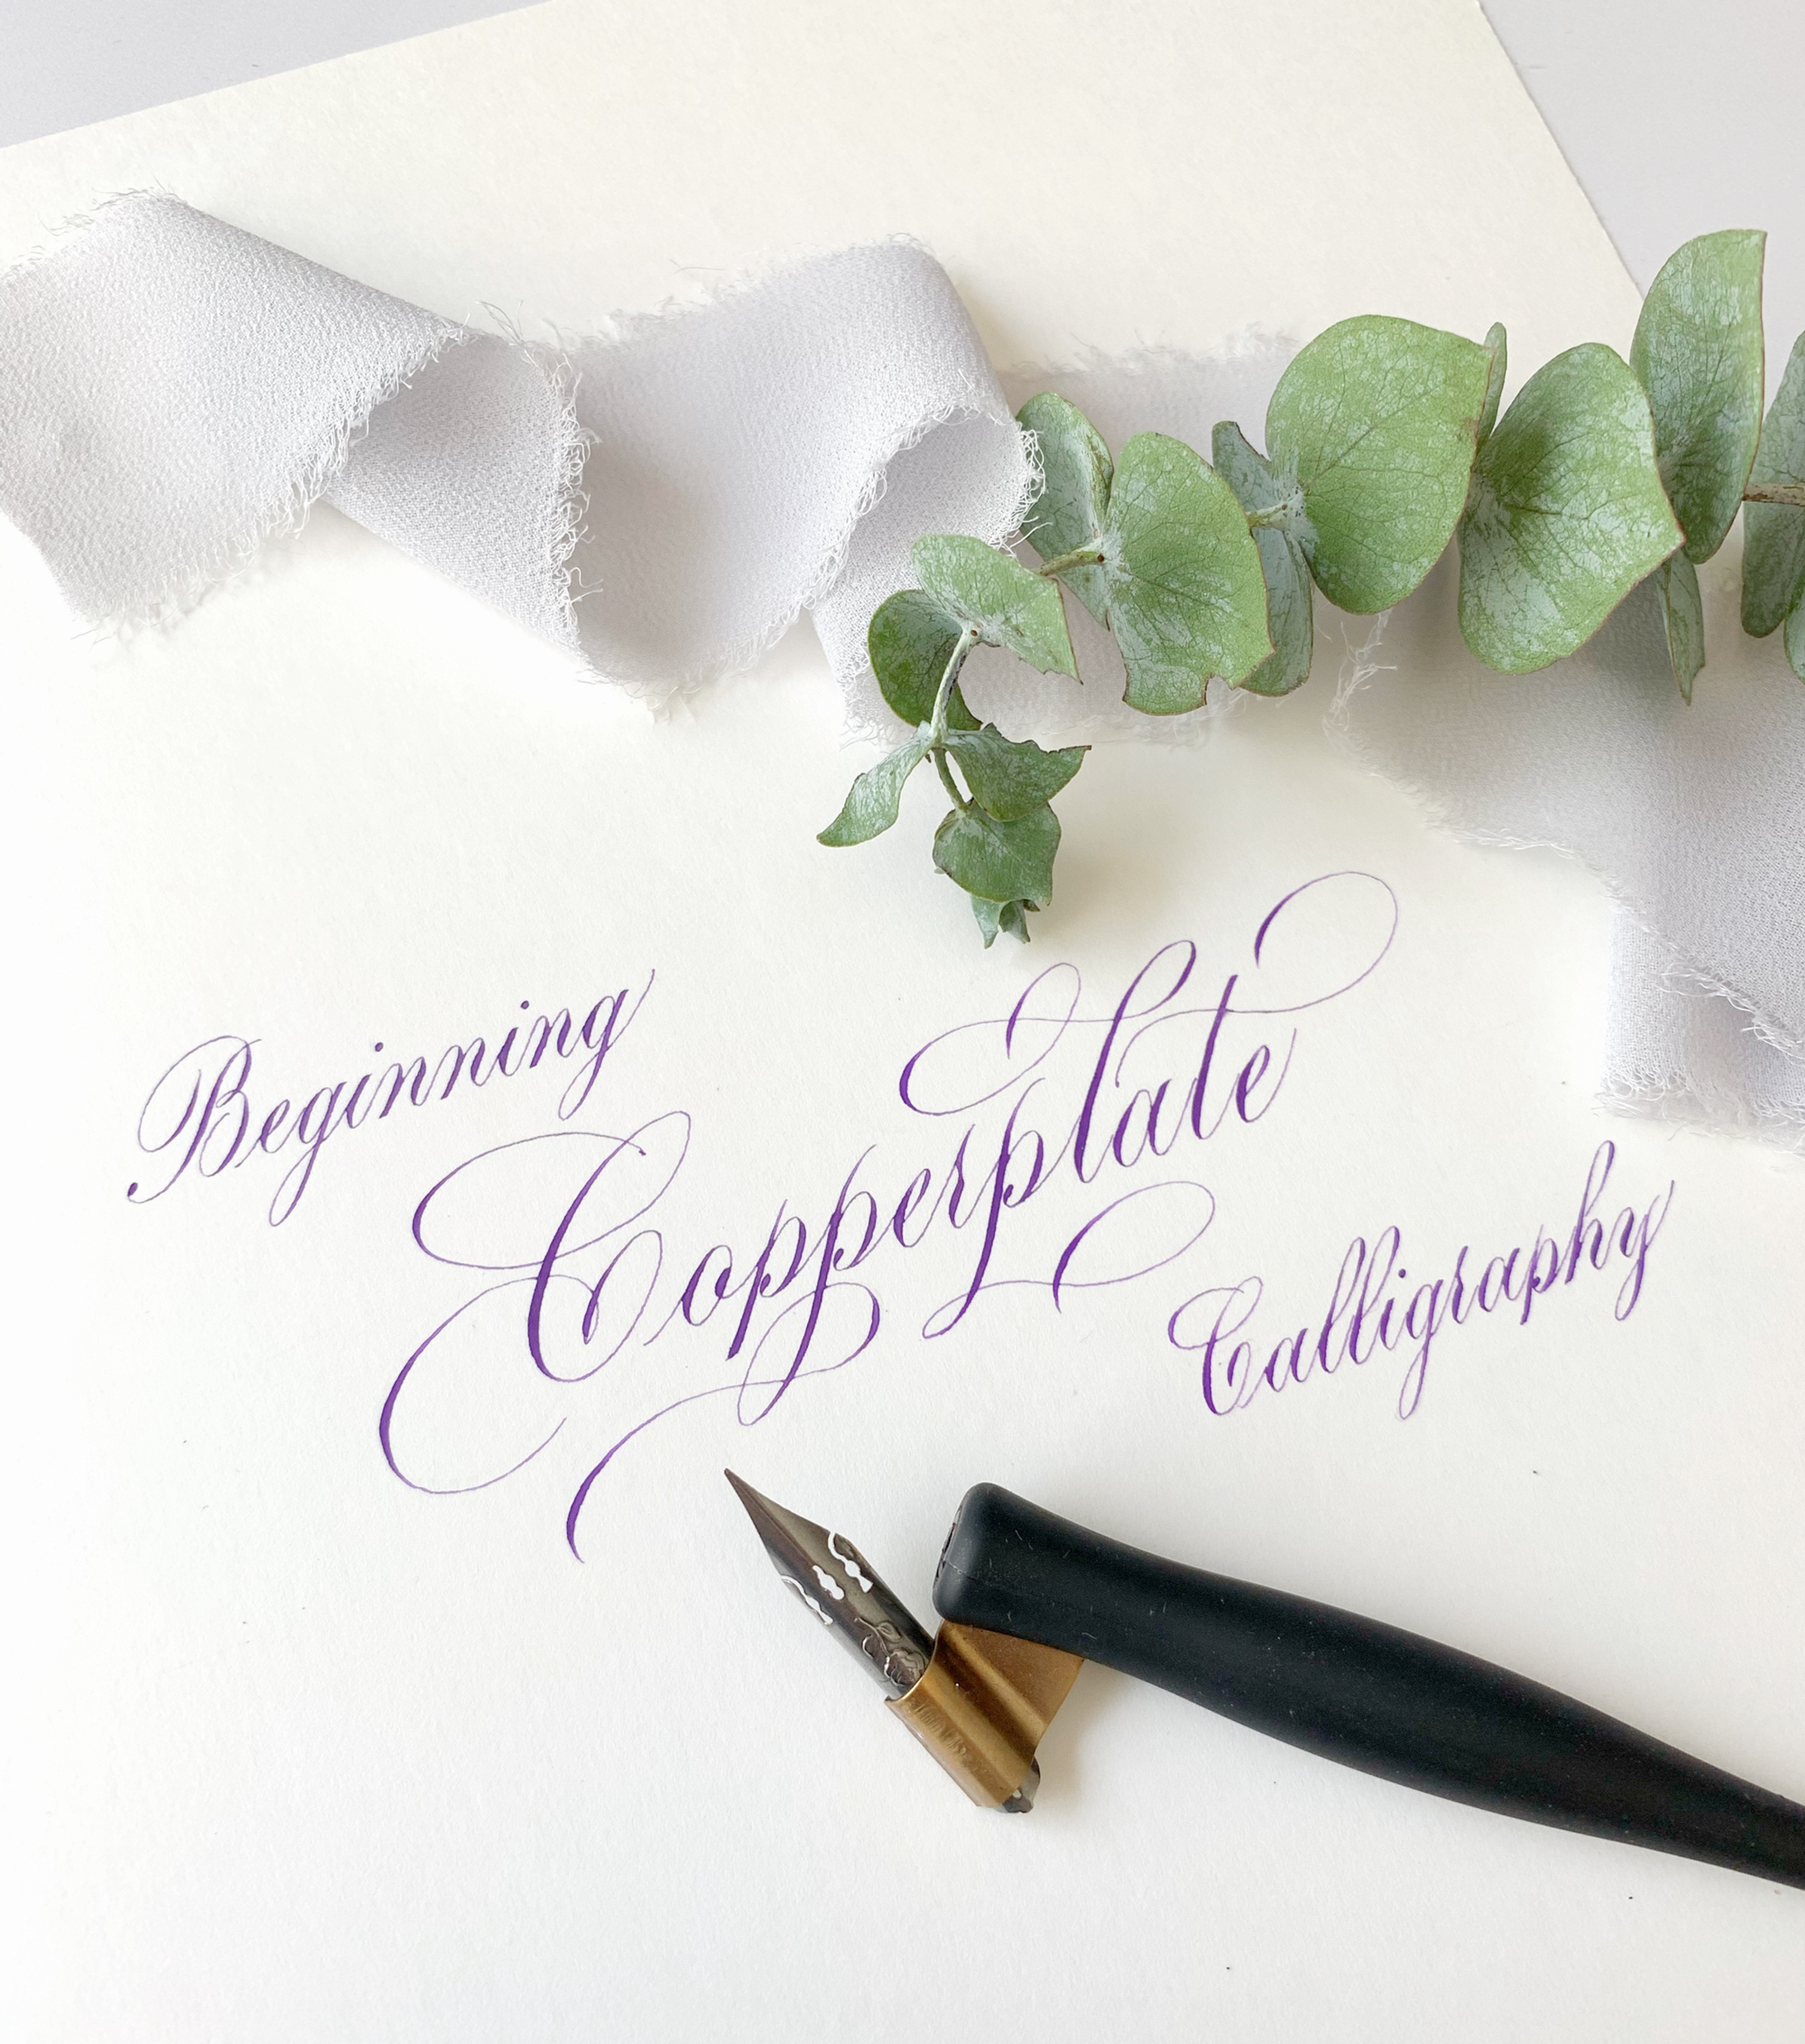 Beginning
Copperplate
Calligraphy